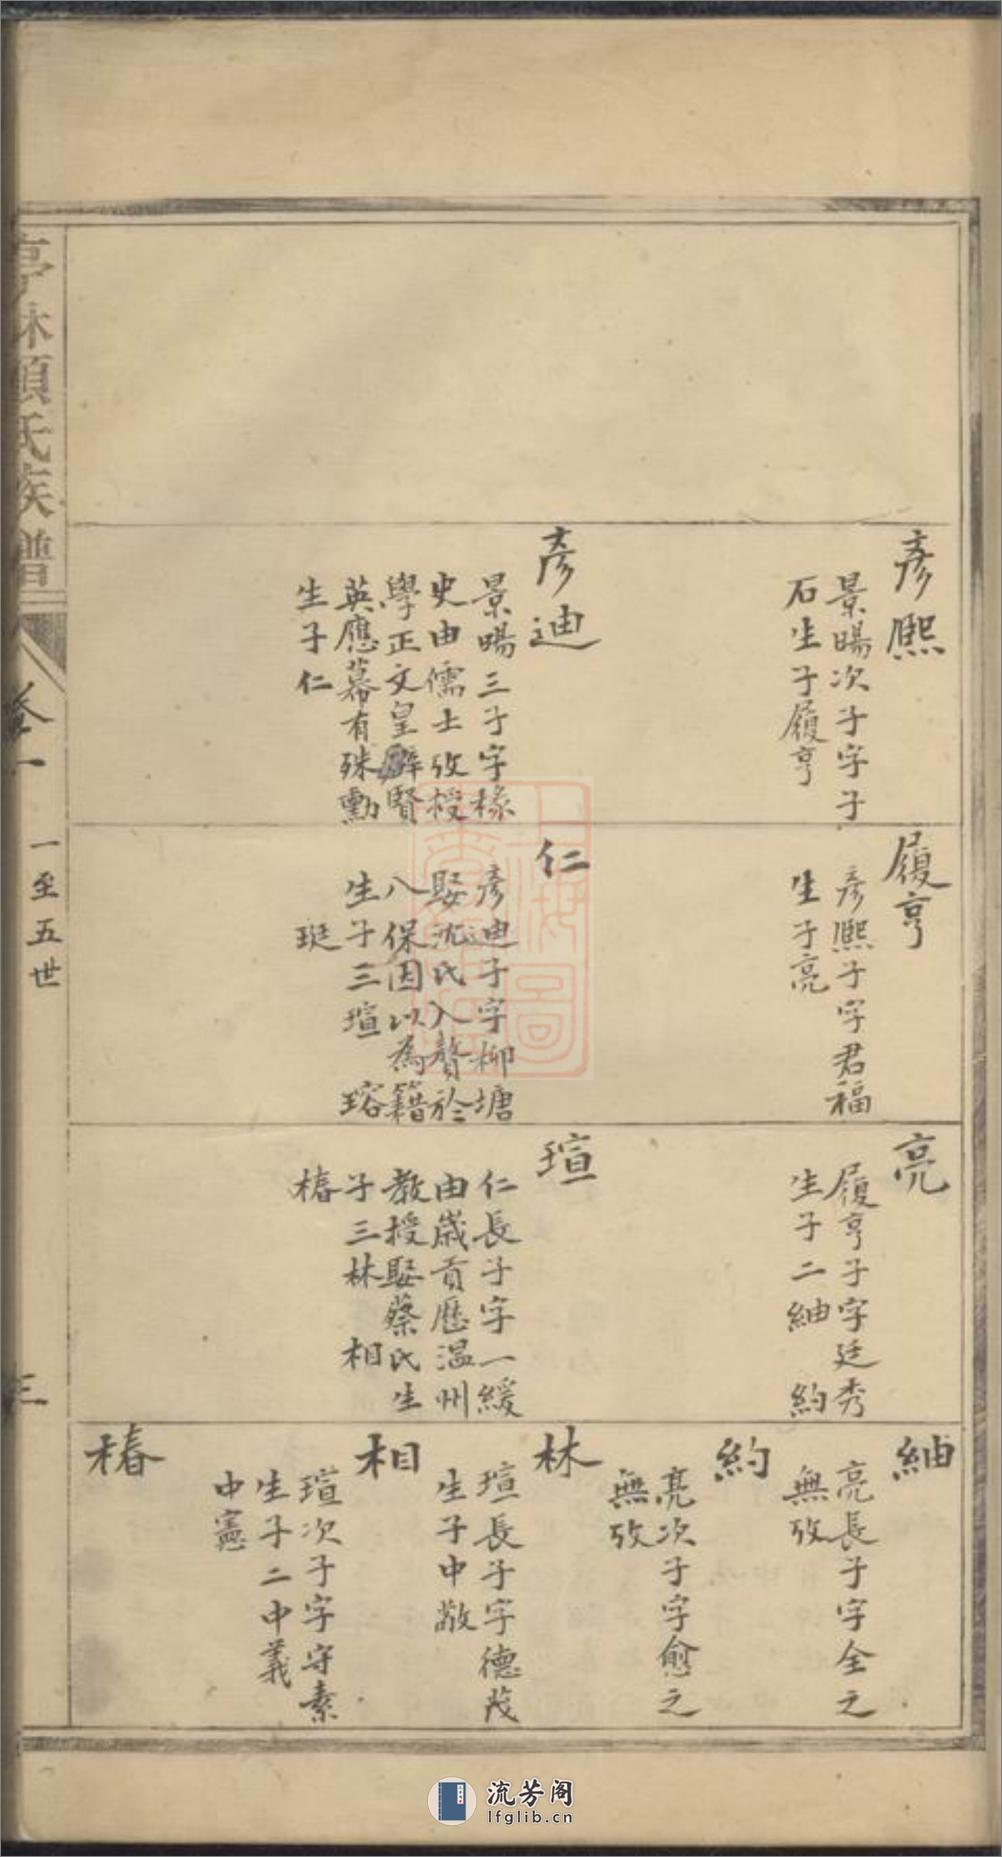 彥熙
景暘次子字子
石生子履亨
彥迪
景暘三子字椽
史由儒士攷授
學正文皇辟賢
英應募有殊勳
生子仁
履亨
彥熙子字君福
生子亮
仁
彥迪子字柳塘
娶沈氏入贅於
八保因以為籍
生子三瑄 瑢
珽
亮
履亨子字廷秀
生子二紬 約
瑄
仁長子字一緩
由歲貢歷温州
教授娶蔡氏生
子三林 相
椿
紬
亮長子字全之
無攷
約
亮次子字愈之
無攷
林
瑄長子字德茂
生子中敬
相
瑄次子字守素
生子二中義
中憲
椿
亭林顧氏族譜
卷一
一至五世
三
流芳阁
lfglib.cn